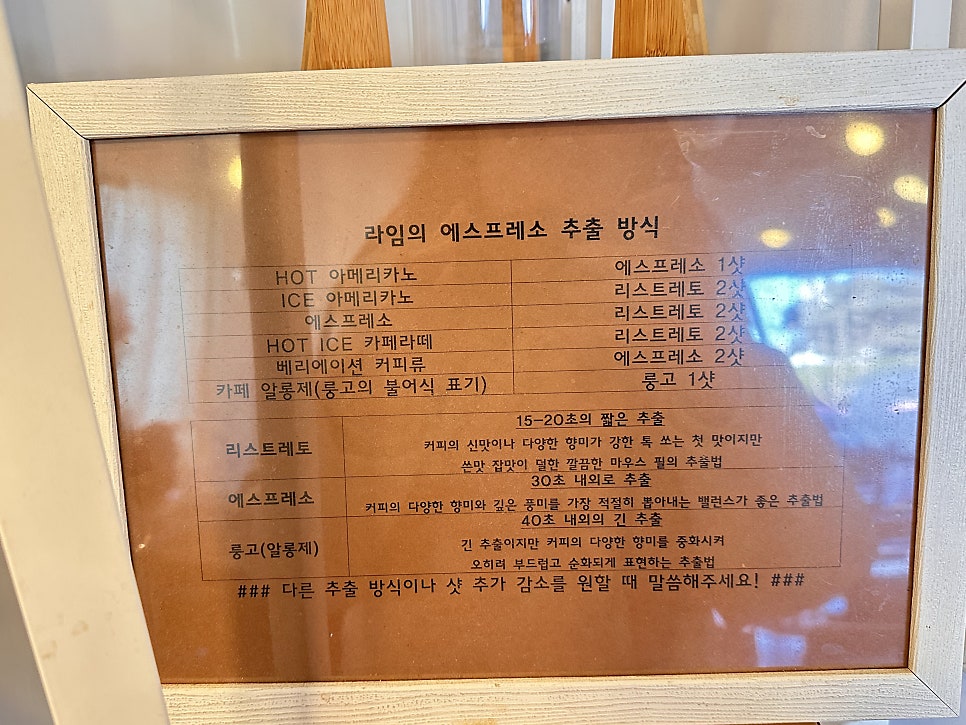 라임의 에스프레소 추출 방식
HOT 아메리카노 에스프레소 1샷
ICE 아메리카노 리스트레토 2샷
에스프레소 리스트레토 2샷
HOT ICE 카페라떼 리스트레토 2샷
베리에이션 커피류 에스프레소 2샷
카페 알롱제(룽고의 불어식 표기) 룽고 1샷
리스트레토
15-20초의 짧은 추출
커피의 신맛이나 다양한 향미가 강한 톡 쏘는 첫 맛이지만
쓴맛 잡맛이 덜한 깔끔한 마우스 필의 추출법
에스프레소
30초 내외로 추출
커피의 다양한 향미와 깊은 풍미를 가장 적절히 뽑아내는 밸런스가 좋은 추출법
룽고(알롱제)
40초 내외의 긴 추출
긴 추출이지만 커피의 다양한 향미를 중화시켜
오히려 부드럽고 순화되게 표현하는 추출법
### 다른 추출 방식이나 샷 추가 감소를 원할 때 말씀해주세요! ###